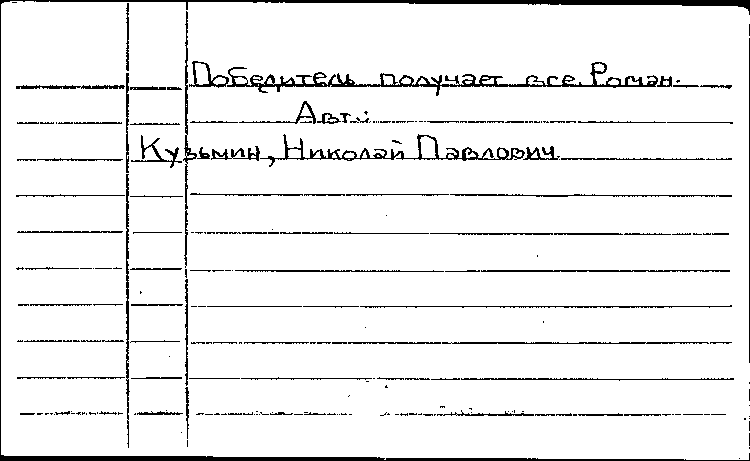 Победитель получает все. Роман.
Авт.:
Кузьмин, Николай Павлович